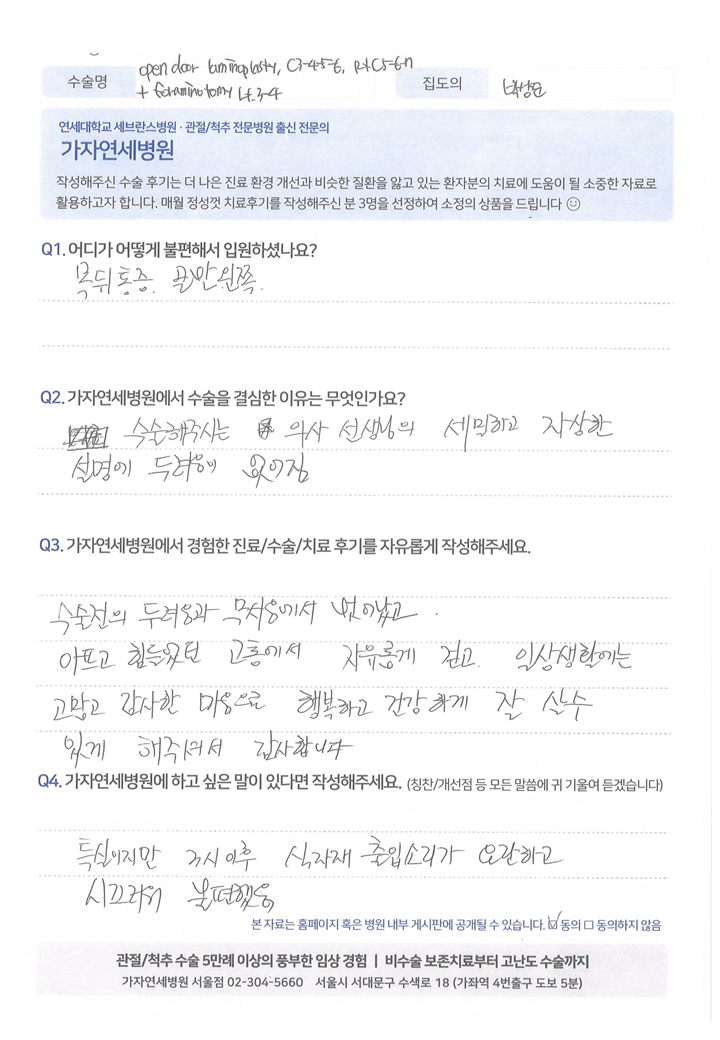 수술명
open door laminoplasty, C3-4-5-6, Rt C5-6-n
+ foraminotomy Lt. 3-4
집도의
연세대학교 세브란스병원 · 관절/척추 전문병원 출신 전문의
가자연세병원
작성해주신 수술 후기는 더 나은 진료 환경 개선과 비슷한 질환을 앓고 있는 환자분의 치료에 도움이 될 소중한 자료로
활용하고자 합니다. 매월 정성껏 치료후기를 작성해주신 분 3명을 선정하여 소정의 상품을 드립니다 ☺
Q1. 어디가 어떻게 불편해서 입원하셨나요?
목뒤통증. 왼쪽.
Q2. 가자연세병원에서 수술을 결심한 이유는 무엇인가요?
수술해주시는 의사 선생님의 세밀하고 자상한
설명에 두려움이 없어짐
Q3. 가자연세병원에서 경험한 진료/수술/치료 후기를 자유롭게 작성해주세요.
수술전의 두려움과 에서 벗어났고.
아프고 힘들었던 고통에서 자유롭게 걷고. 일상생활에는
고맙고 감사한 마음으로 행복하고 건강하게 잘 살수
있게 해주셔서 감사합니다
Q4. 가자연세병원에 하고 싶은 말이 있다면 작성해주세요. (칭찬/개선점 등 모든 말씀에 귀 기울여 듣겠습니다)
특실이지만 3시이후 식자재 출입소리가 요란하고
시끄러워 불편했음
본 자료는 홈페이지 혹은 병원 내부 게시판에 공개될 수 있습니다. ☑ 동의 ☐ 동의하지 않음
관절/척추 수술 5만례 이상의 풍부한 임상 경험 | 비수술 보존치료부터 고난도 수술까지
가자연세병원 서울점 02-304-5660 서울시 서대문구 수색로 18 (가좌역 4번출구 도보 5분)